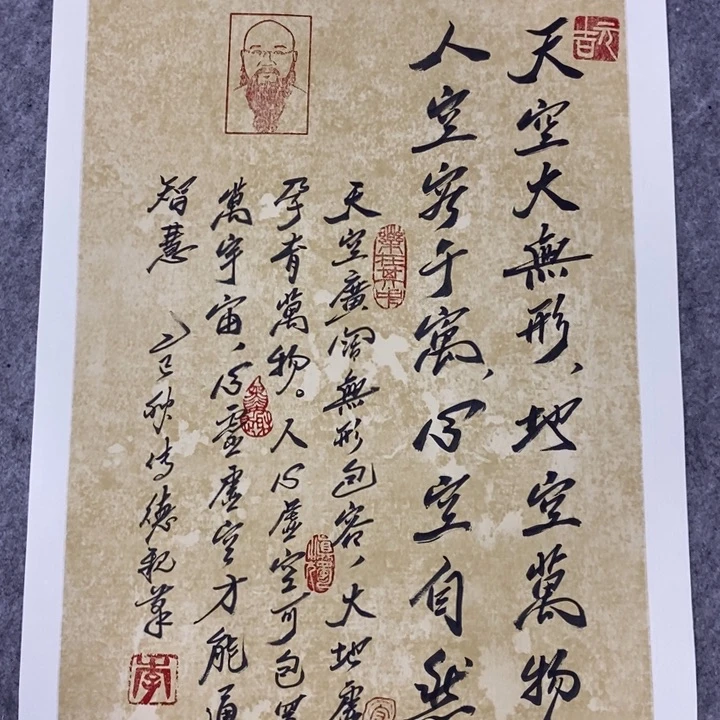 天空大無形、地空萬物
人空容宇寓，心空自然
天空廣闊無形包容，大地虛
孕育萬物。人心虛空可包羅
萬宇宙，心靈虛空才能通
智慧
乙巳秋 傳德親筆